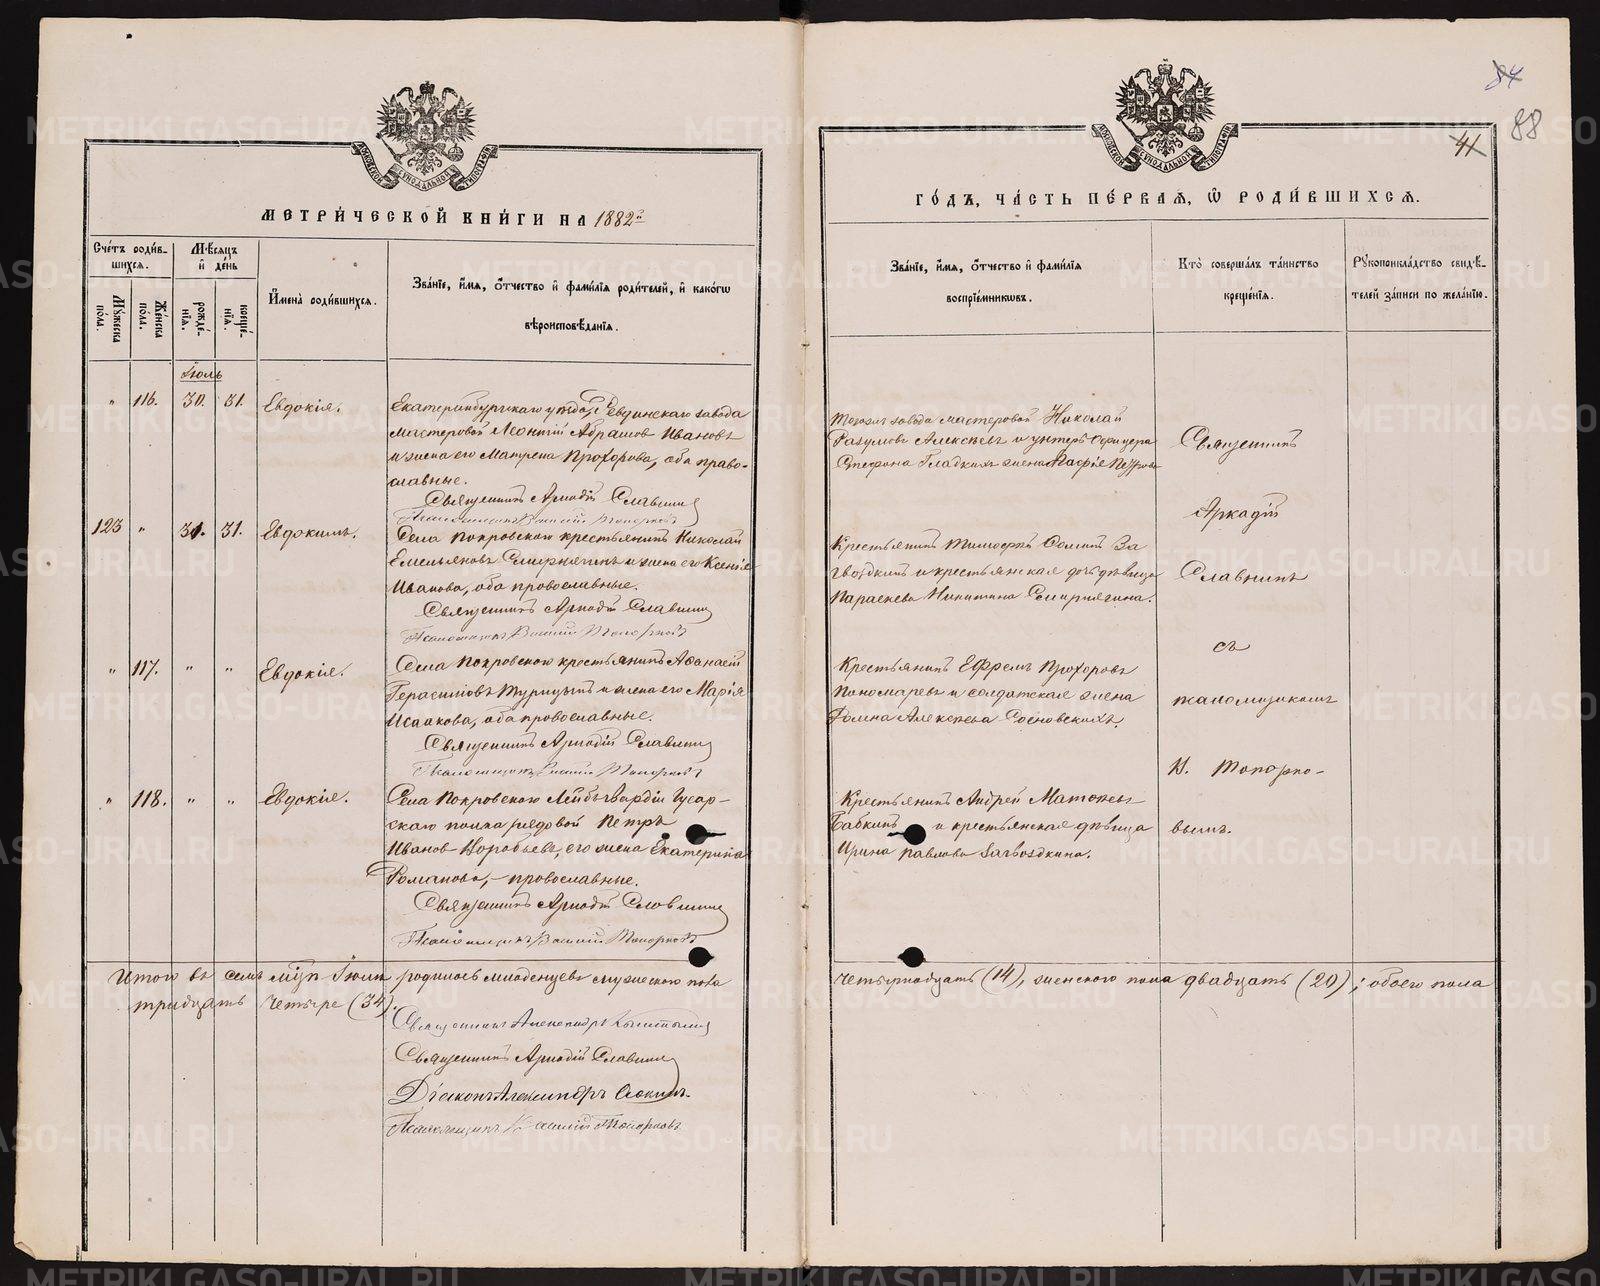 МЕТРИ́ЧЕСКОЙ КНИ́ГИ НА 1882й
Сче́тъ роди́в-
шихся.
Мѣ́сяцъ
и҆ де́нь
Му́жеска
по́ла.
Же́нска
по́ла.
рожде́-
нія.
креще́-
нія.
И҆мена̀ роди́вшихся.
Зва́ніе, и҆́мя, ѻ҆́тчество и҆ фами́лія роди́телей, и҆ како́гѡ
вѣроисповѣ́данія.
Іюль
" 116. 30. 31. Евдокія.
Екатеринбургскаго уѣзда, Ревдинскаго завода
мастеровой Леонтій Абрамов Ивановъ
и жена его Матрена Прохорова, оба право-
славные.
Священникъ Аркадій Славнинъ
Псаломщикъ Василій Топорковъ
123 " 31. 31. Евдокимъ.
Села Покровского крестьянинъ Николай
Емельяновъ Смирнягинъ и жена его Ксенія
Иванова, оба православные.
Священникъ Аркадій Славнинъ
Псаломщикъ Василій Топорковъ
" 117. " " Евдокія.
Села Покровского крестьянинъ Афанасій
Герасимовъ Турицынъ и жена его Марія
Исаакова, оба православные.
Священникъ Аркадій Славнинъ
Псаломщикъ Василій Топорковъ
" 118. " " Евдокія.
Села Покровского Лейбъ-гвардіи Гусар-
скаго полка рядовой Петръ
Иванов Воробьевъ, его жена Екатерина
Романова, - православные.
Священникъ Аркадій Славнинъ
Псаломщикъ Василій Топорковъ
Итого въ семъ мѣц Іюлѣ родилось младенцевъ мужеского пола
тридцать четыре (34).
Священникъ Александръ
Священникъ Аркадій Славнинъ
Діаконъ Александръ
Псаломщикъ Василій Топорковъ
84
88
41
ГО́ДЪ, ЧА́СТЬ ПЕ́РВАЯ, Ѡ҆ РОДИ́ВШИХСЯ.
Зва́ніе, и҆́мя, ѻ҆́тчество и҆ фами́лія
воспріе́мниковъ.
Кто̀ соверша́лъ та́инство
креще́нія.
Рукоприкла́дство свидѣ́-
телей за́писи по жела́нію.
Тогожъ завода мастеровой Николай
Разумовъ Алексѣевъ и унтеръ офицера
Стефана Гладкихъ жена Агафія Петрова
Крестьянинъ Тимофей Ѳоминъ За
гвоздкинъ и крестьянская дочь дѣвица
Параскева Никитина Смирнягина.
Крестьянинъ Ефремъ Прохоровъ
Пономаревъ и солдатская жена
Домна Алексѣева Сосновскихъ.
Крестьянинъ Андрей Матѳеевъ
Бабкинъ и крестьянская дѣвица
Ирина Павлова Загвоздкина.
Священникъ
Аркадій
Славнинъ
съ
псаломщикомъ
В. Топорко-
вымъ.
четырнадцать (14), женского пола двадцать (20); обоего пола